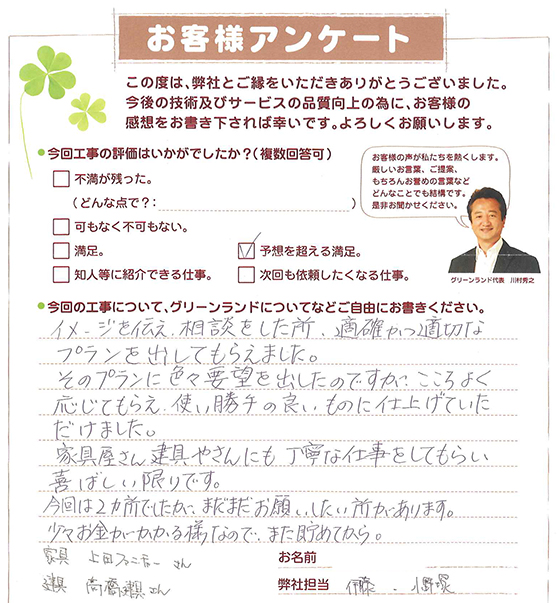 お客様アンケート
この度は、弊社とご縁をいただきありがとうございました。
今後の技術及びサービスの品質向上の為に、お客様の
感想をお書き下されば幸いです。よろしくお願いします。
●今回工事の評価はいかがでしたか？(複数回答可)
不満が残った。
(どんな点で？: )
可もなく不可もない。
満足。
予想を超える満足。
知人等に紹介できる仕事。
次回も依頼したくなる仕事。
お客様の声が私たちを熱くします。
厳しいお言葉、ご提案、
もちろんお誉めの言葉など
どんなことでも結構です。
是非お聞かせください。
グリーンランド代表 川村秀之
●今回の工事について、グリーンランドについてなどご自由にお書きください。
イメージを伝え、相談をした所、適確かつ適切な
プランを出してもらえました。
そのプランに色々要望を出したのですが、こころよく
応じてもらえ、使い勝手の良いものに仕上げていた
だけました。
家具屋さん、建具やさんにも丁寧な仕事をしてもらい
喜ばしい限りです。
今回は2カ所でしたが、まだまだお願いしたい所があります。
少々お金がかかる様なので、また貯めてから。
家具 上田ファニチャーさん
建具 高齋建具さん
お名前
弊社担当 伊藤・小野塚